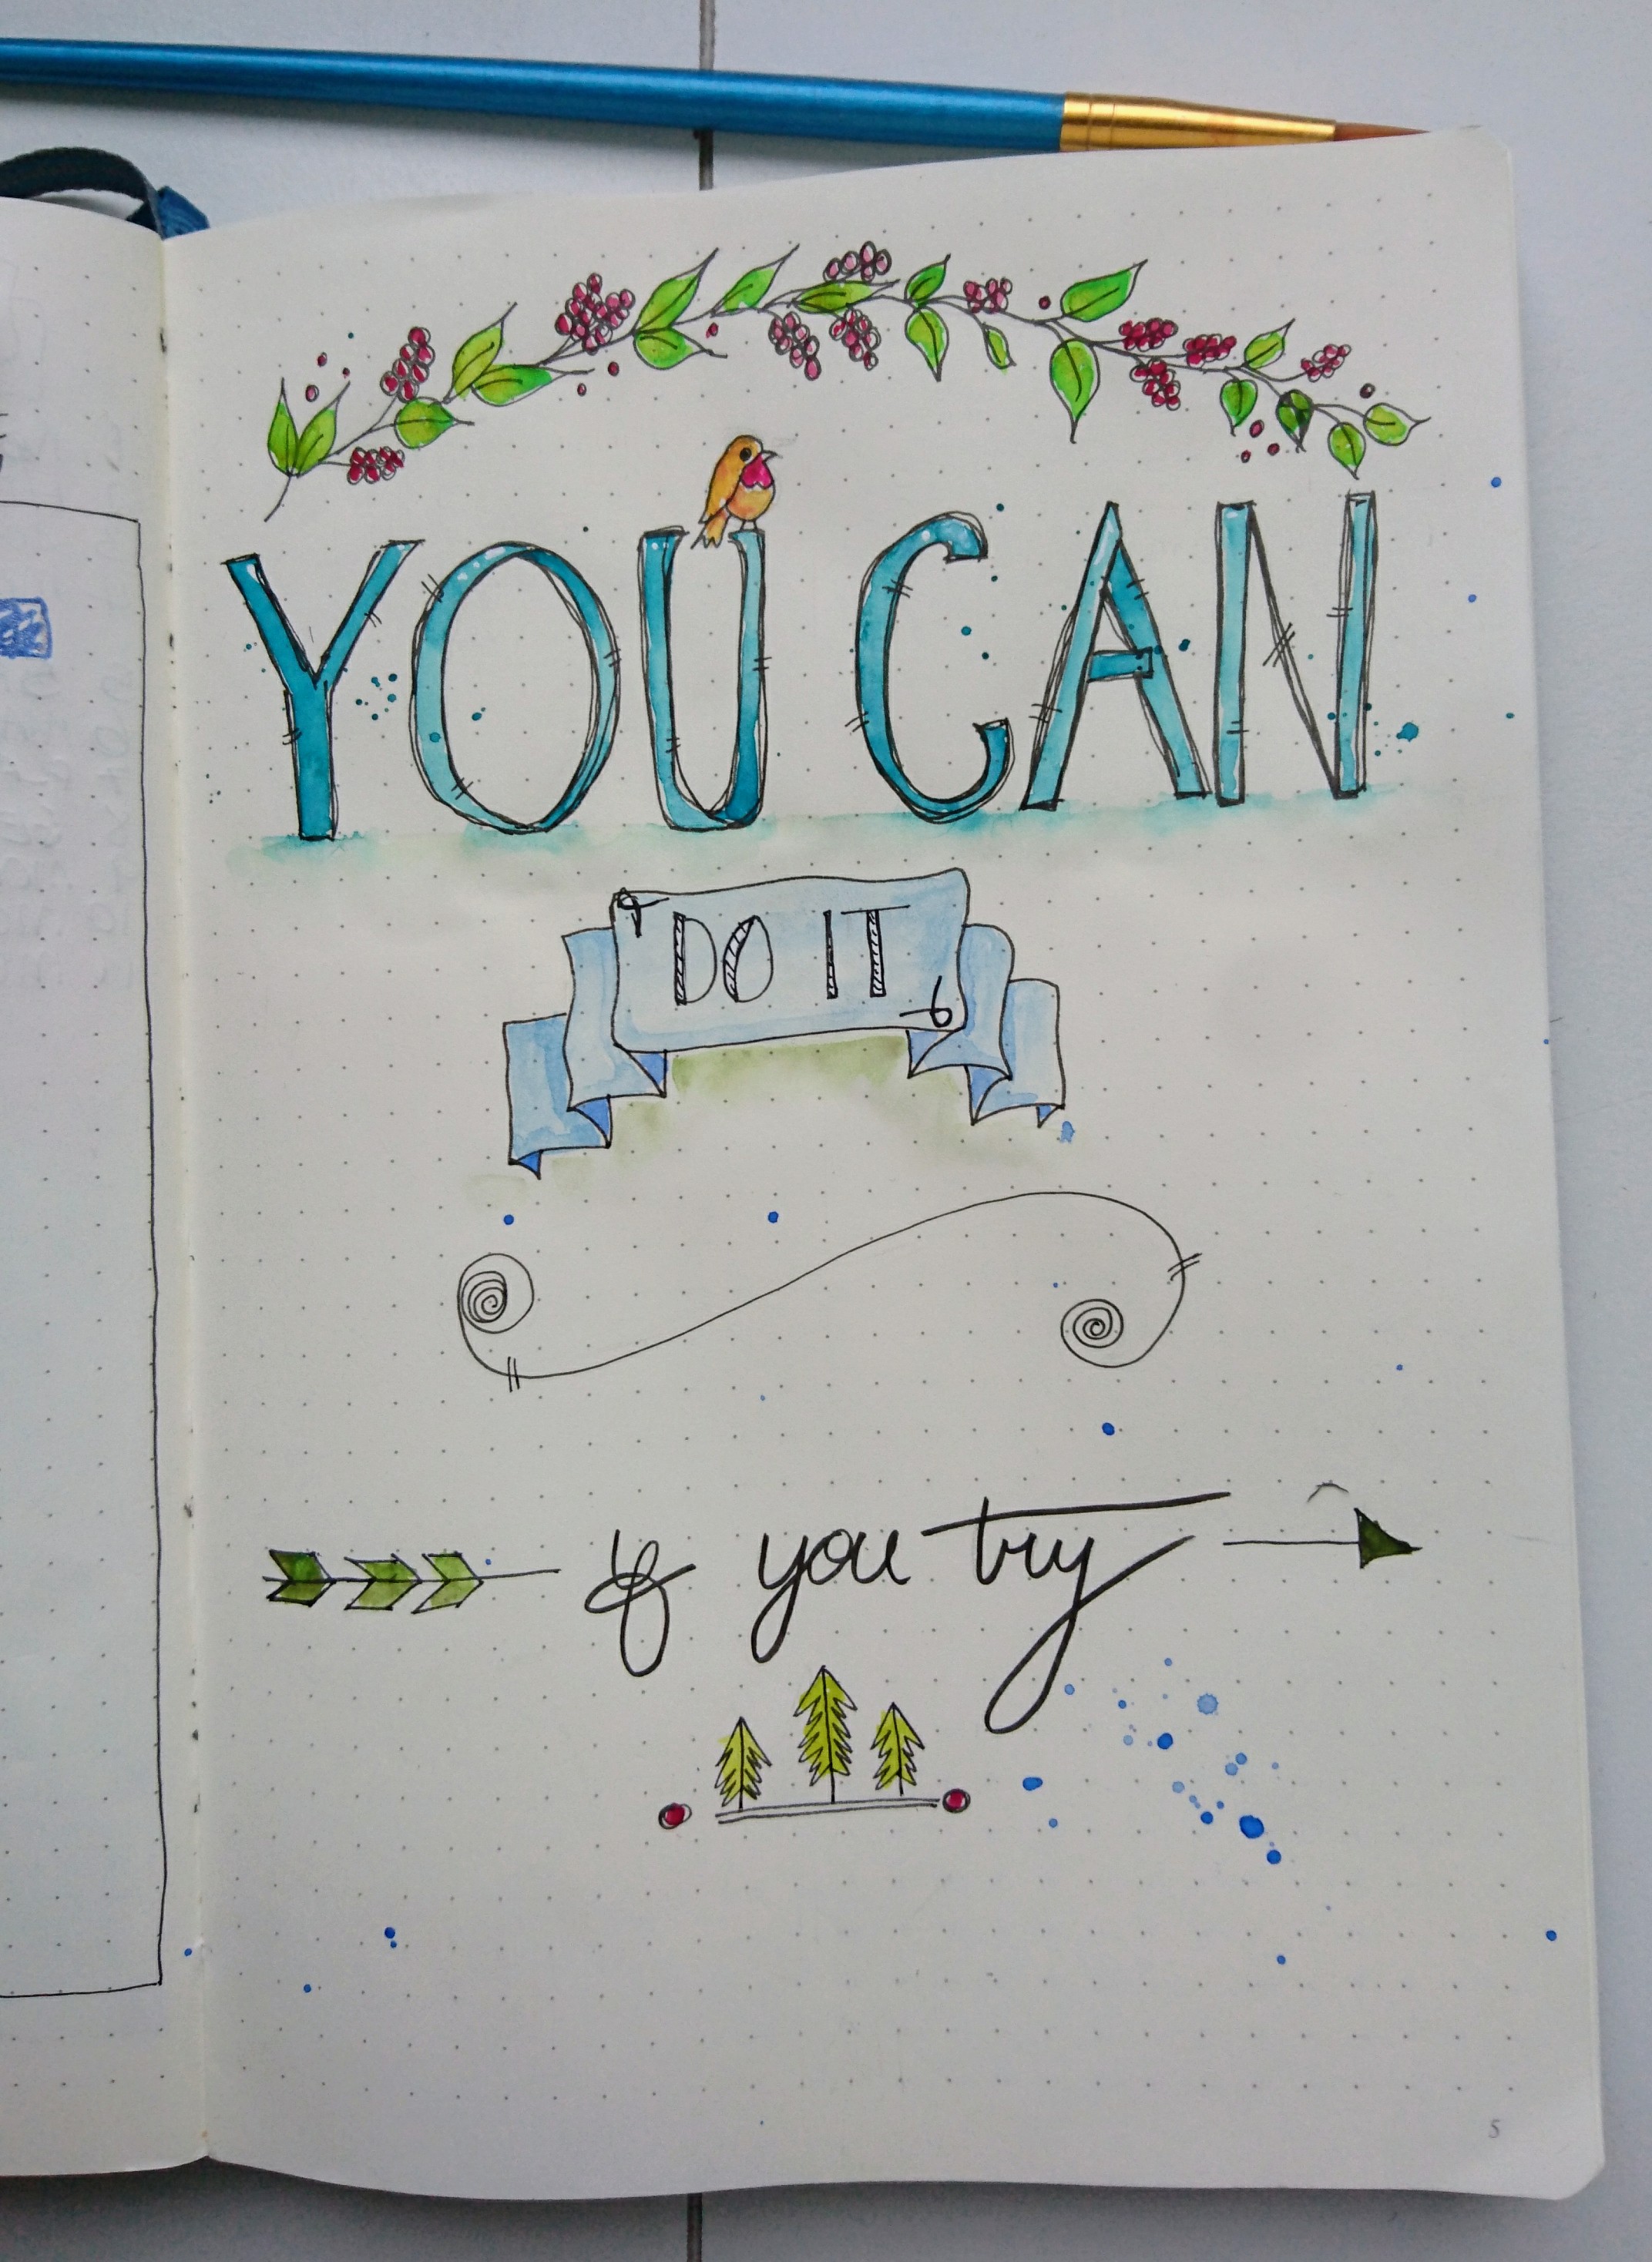 YOU CAN
DO IT
if you try
5